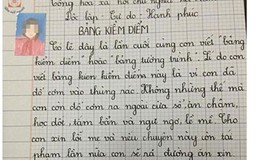 Cộng hòa xã hội chủ nghĩa Việt Nam
Độc lập - Tự do - Hạnh phúc
BẢNG KIỂM ĐIỂM
Có lẽ đây là lần cuối cùng con viết "bảng
kiểm điểm" hoặc "bảng tường trình". Lí do con
viết bảng kiểm điểm này là vì con đã
đổ cơm vào thùng rác. Không những thế mà
con còn đổ cơm ra ngoài cửa sổ, ăn chậm,
học dốt, làm bẩn và ngứ ngọ, lề mề. Cho
con xin lỗi mẹ và nếu chuyện này còn tái
phạm lần nữa con sẽ ra đường ăn xin